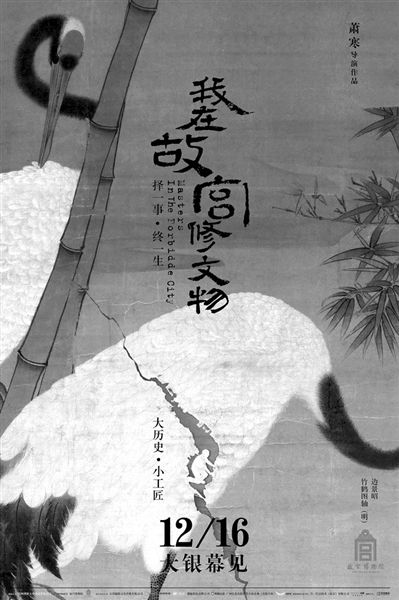 萧寒导演作品
我在故宫修文物
Masters
In The Forbidde City
择一事·终一生
大历史·小工匠
边景昭
竹鹤图轴(明)
12/16
大银幕见
故宫博物院